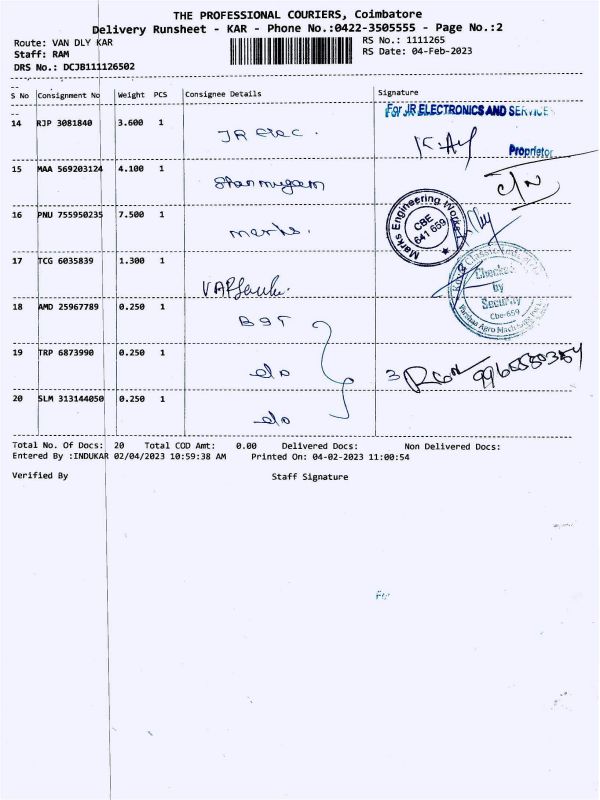 THE PROFESSIONAL COURIERS, Coimbatore
Delivery Runsheet - KAR - Phone No.:0422-3505555 - Page No.:2
Route: VAN DLY KAR RS No.: 1111265
Staff: RAM RS Date: 04-Feb-2023
DRS No.: DCJB111126502
S No Consignment No Weight PCS Consignee Details Signature
For JR ELECTRONICS AND SERVICE
14 RJP 3081840 3.600 1 JR elec.
Proprietor
15 MAA 569203124 4.100 1 Shanmugam
16 PNU 755950235 7.500 1 marks.
Marks Engineering Works
CBE
641 659
17 TCG 6035839 1.300 1
Checked
By
Security
Cbe-659
18 AMD 25967789 0.250 1
19 TRP 6873990 0.250 1 do
20 SLM 313144050 0.250 1 do
Total No. Of Docs: 20 Total COD Amt: 0.00 Delivered Docs: Non Delivered Docs:
Entered By :INDUKAR 02/04/2023 10:59:38 AM Printed On: 04-02-2023 11:00:54
Verified By Staff Signature
For